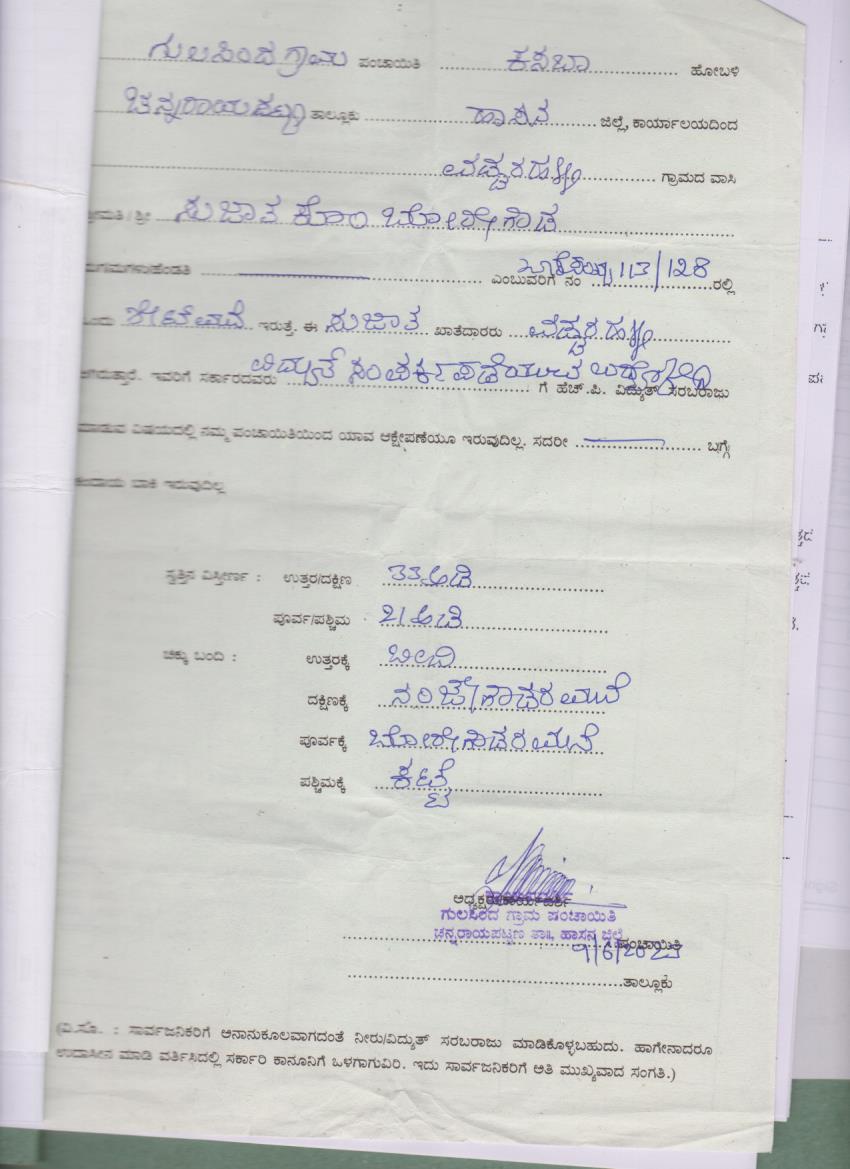 ಗುಲಸಿಂದ ಗ್ರಾಮ ಪಂಚಾಯಿತಿ ........ ಕಸಬಾ ........ ಹೋಬಳಿ
ಚನ್ನರಾಯಪಟ್ಟಣ ತಾಲ್ಲೂಕು ........ ಹಾಸನ ........ ಜಿಲ್ಲೆ, ಕಾರ್ಯಾಲಯದಿಂದ
........ ಗ್ರಾಮದ ವಾಸಿ
ಶ್ರೀಮತಿ / ಶ್ರೀ ಸುಜಾತ ಕೋಂ ಬೋರೇಗೌಡ
ಮಗ/ಮಗಳು/ಹೆಂಡತಿ ........ ಎಂಬುವರಿಗೆ ನಂ 113/128 ರಲ್ಲಿ
ಒಂದು ಶೀಟ್ ಮನೆ ಇರುತ್ತೆ. ಈ ಸುಜಾತ ಖಾತೆದಾರರು
ಆಗಿರುತ್ತಾರೆ. ಇವರಿಗೆ ಸರ್ಕಾರದವರು ವಿದ್ಯುತ್ ಸಂಪರ್ಕ ಪಡೆಯುವ ಗೆ ಹೆಚ್.ಪಿ. ವಿದ್ಯುತ್ ಸರಬರಾಜು
ಮಾಡುವ ವಿಷಯದಲ್ಲಿ ನಮ್ಮ ಪಂಚಾಯಿತಿಯಿಂದ ಯಾವ ಆಕ್ಷೇಪಣೆಯೂ ಇರುವುದಿಲ್ಲ. ಸದರೀ ........ ಬಗ್ಗೆ
ಕಂದಾಯ ಬಾಕಿ ಇರುವುದಿಲ್ಲ
ಸ್ವತ್ತಿನ ವಿಸ್ತೀರ್ಣ : ಉತ್ತರ/ದಕ್ಷಿಣ 33 ಅಡಿ
ಪೂರ್ವ/ಪಶ್ಚಿಮ 21 ಅಡಿ
ಚಕ್ಕು ಬಂದಿ : ಉತ್ತರಕ್ಕೆ ಬೀದಿ
ದಕ್ಷಿಣಕ್ಕೆ ನಂಜೇಗೌಡರ ಮನೆ
ಪೂರ್ವಕ್ಕೆ ಬೋರೇಗೌಡರ ಮನೆ
ಪಶ್ಚಿಮಕ್ಕೆ ಕಟ್ಟೆ
ಅಧ್ಯಕ್ಷರು/ಕಾರ್ಯದರ್ಶಿ
ಗುಲಸಿಂದ ಗ್ರಾಮ ಪಂಚಾಯಿತಿ
ಚನ್ನರಾಯಪಟ್ಟಣ ತಾ||, ಹಾಸನ ಜಿಲ್ಲೆ
........ ಪಂಚಾಯಿತಿ
9/6/2023
........ ತಾಲ್ಲೂಕು
(ವಿ.ಸೂ. : ಸಾರ್ವಜನಿಕರಿಗೆ ಅನಾನುಕೂಲವಾಗದಂತೆ ನೀರು/ವಿದ್ಯುತ್ ಸರಬರಾಜು ಮಾಡಿಕೊಳ್ಳಬಹುದು. ಹಾಗೇನಾದರೂ
ಉದಾಸೀನ ಮಾಡಿ ವರ್ತಿಸಿದಲ್ಲಿ ಸರ್ಕಾರಿ ಕಾನೂನಿಗೆ ಒಳಗಾಗುವಿರಿ. ಇದು ಸಾರ್ವಜನಿಕರಿಗೆ ಅತಿ ಮುಖ್ಯವಾದ ಸಂಗತಿ.)